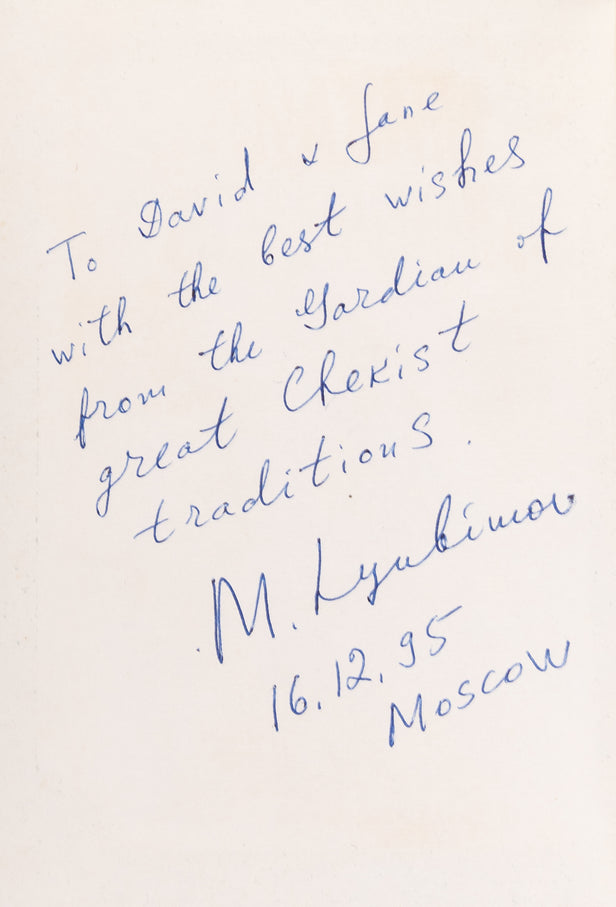 To David & Jane
with the best wishes
from the Gardian of
great Chekist
traditions.
M. Lyubimov
16.12.95
Moscow